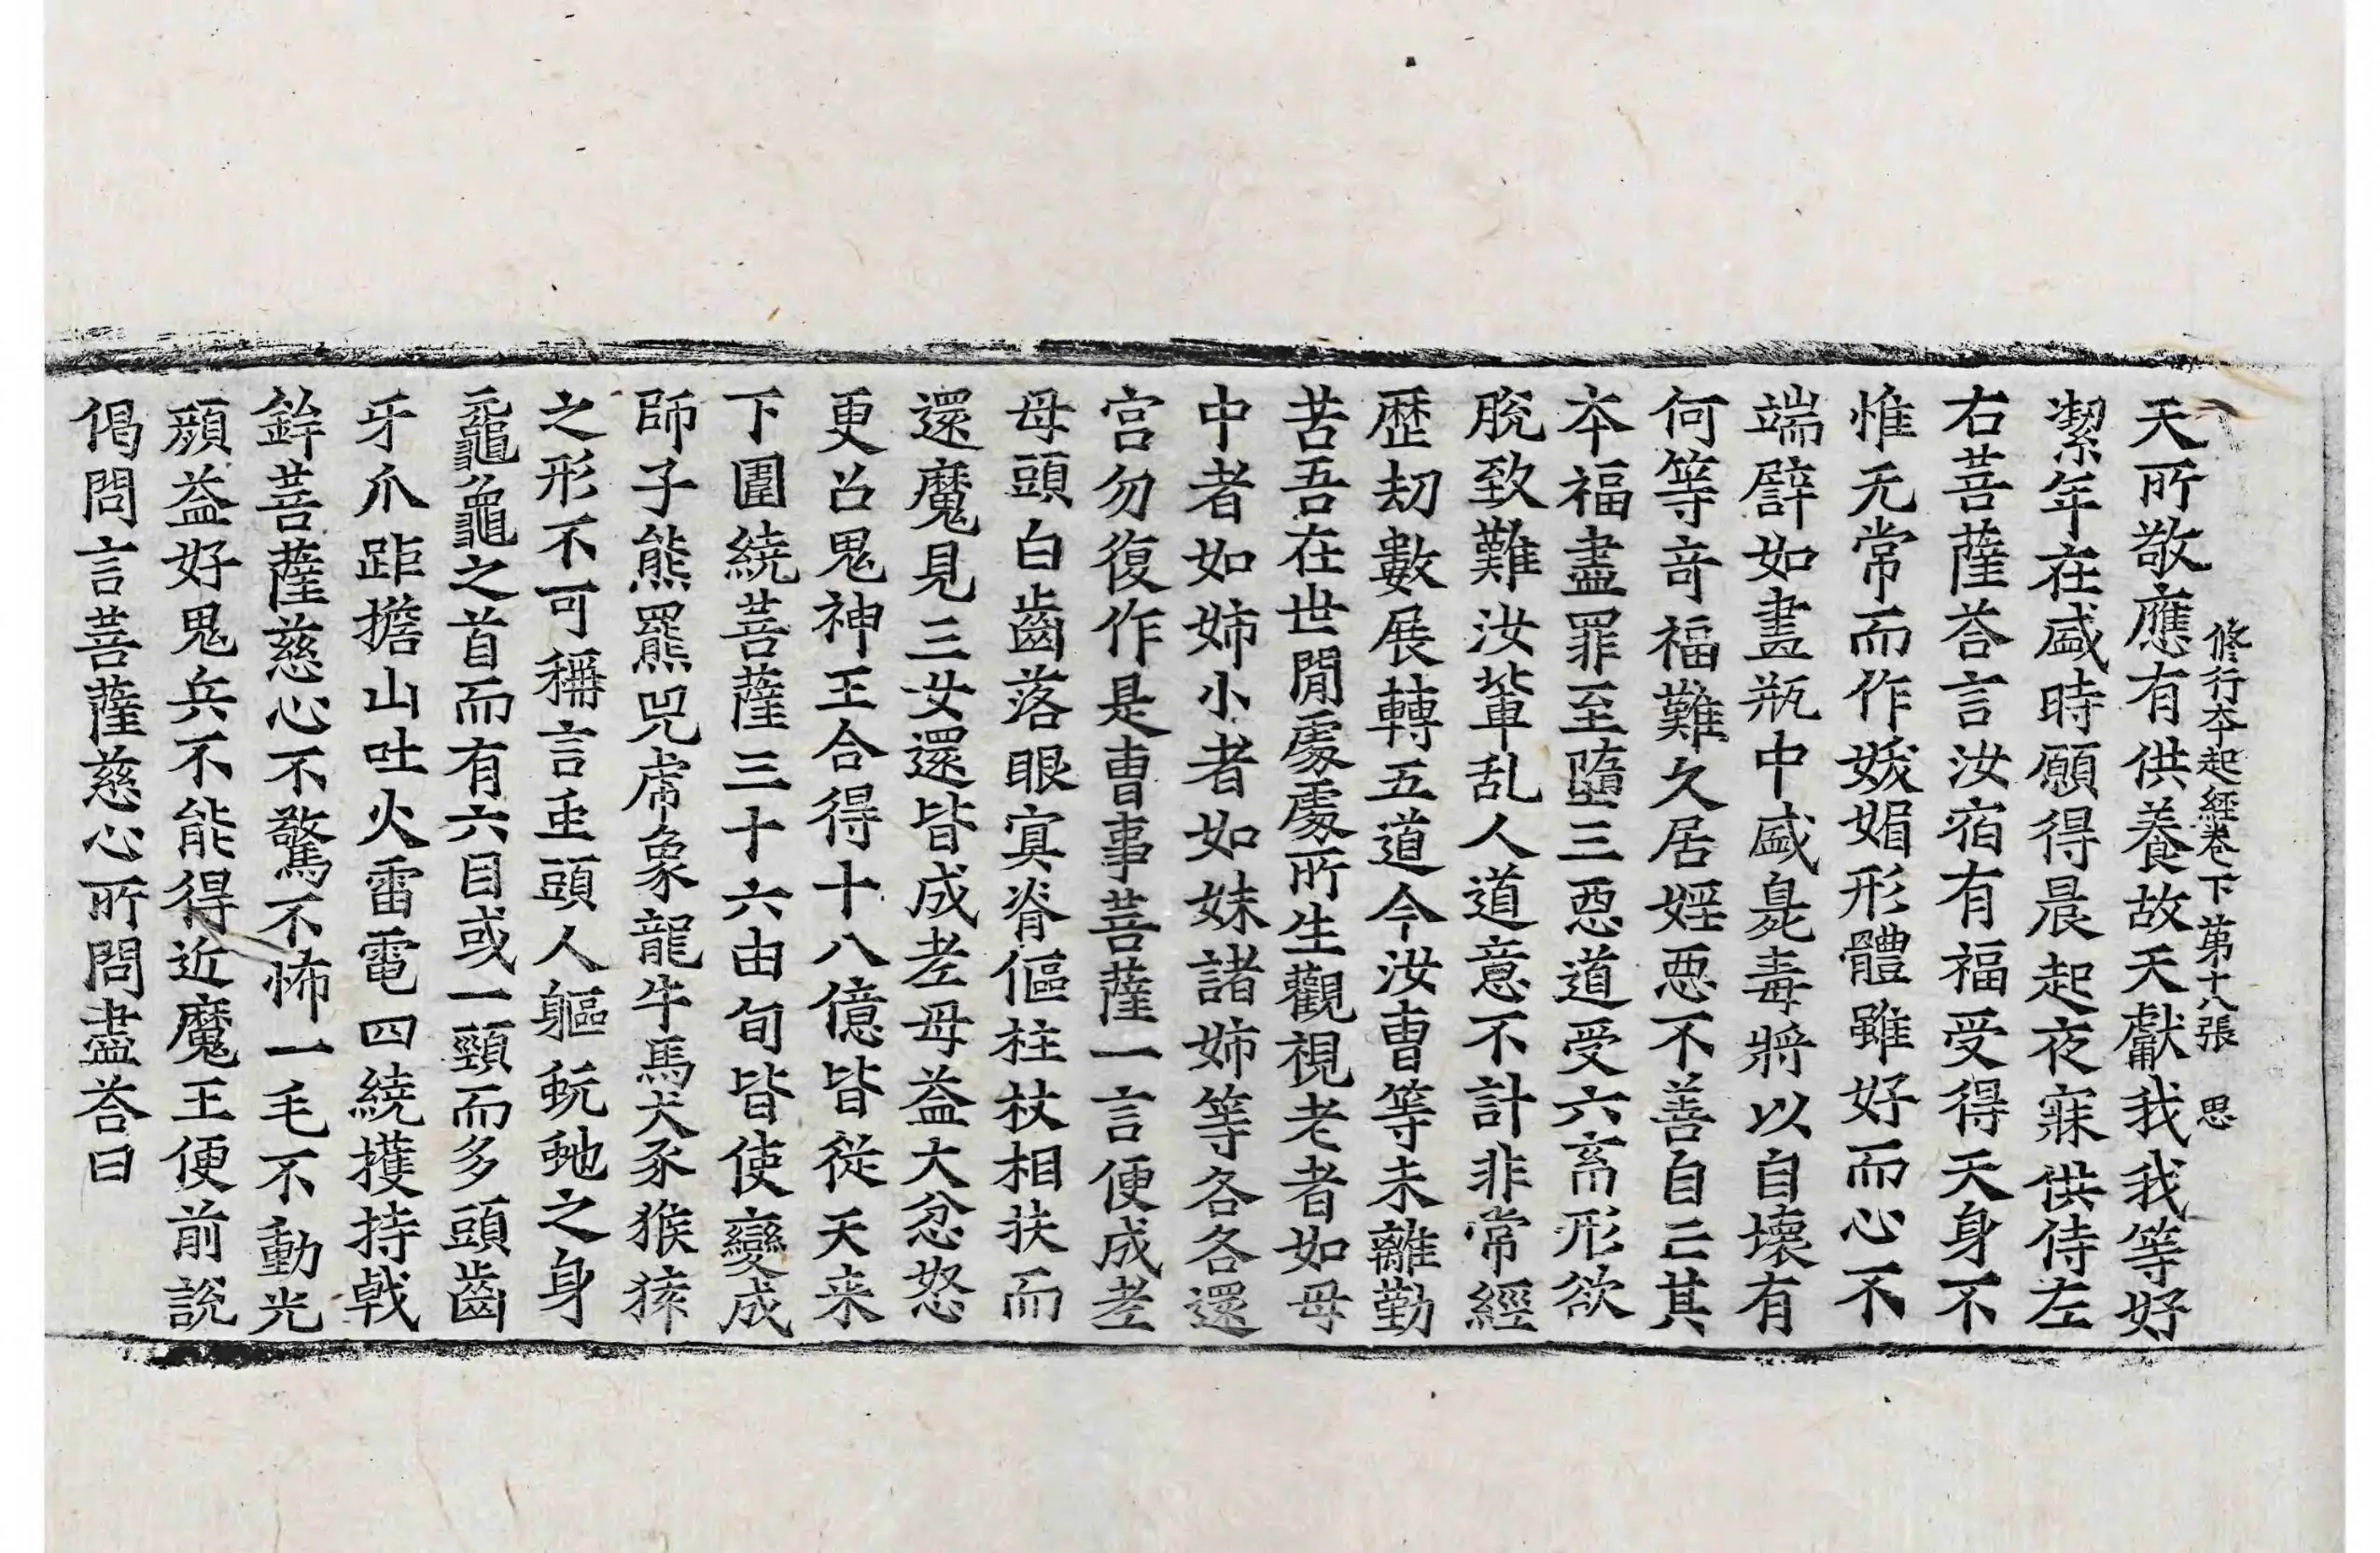 修行本起經卷下 第十八張 思
天所敬應有供養故天獻我我等好
潔年在盛時願得晨起夜寐供侍左
右菩薩荅言汝宿有福受得天身不
惟无常而作妖媚形體雖好而心不
端譬如畫瓶中盛臭毒將以自壞有
何等竒福難久居婬惡不善自亡其
本福盡罪至墮三惡道受六畜形欲
脫致難汝軰乱人道意不計非常經
歷劫數展轉五道今汝曹等未離勤
苦吾在世閒處處所生觀視老者如母
中者如姉小者如妹諸姉等各各還
宫勿復作是曹事菩薩一言便成老
母頭白齒落眼冥脊傴柱杖相扶而
還魔見三女還皆成老母益大忿怒
更召鬼神王合得十八億皆從天来
下圍繞菩薩三十六由旬皆使變成
師子熊羆兕虎象龍牛馬犬豕猴猨
之形不可稱言虫頭人軀蚖虵之身
黿龜之首而有六目或一頸而多頭齒
牙爪距擔山吐火雷電四繞擭持戟
鉾菩薩慈心不驚不怖一毛不動光
顔益好鬼兵不能得近魔王便前說
偈問言菩薩慈心所問盡荅曰